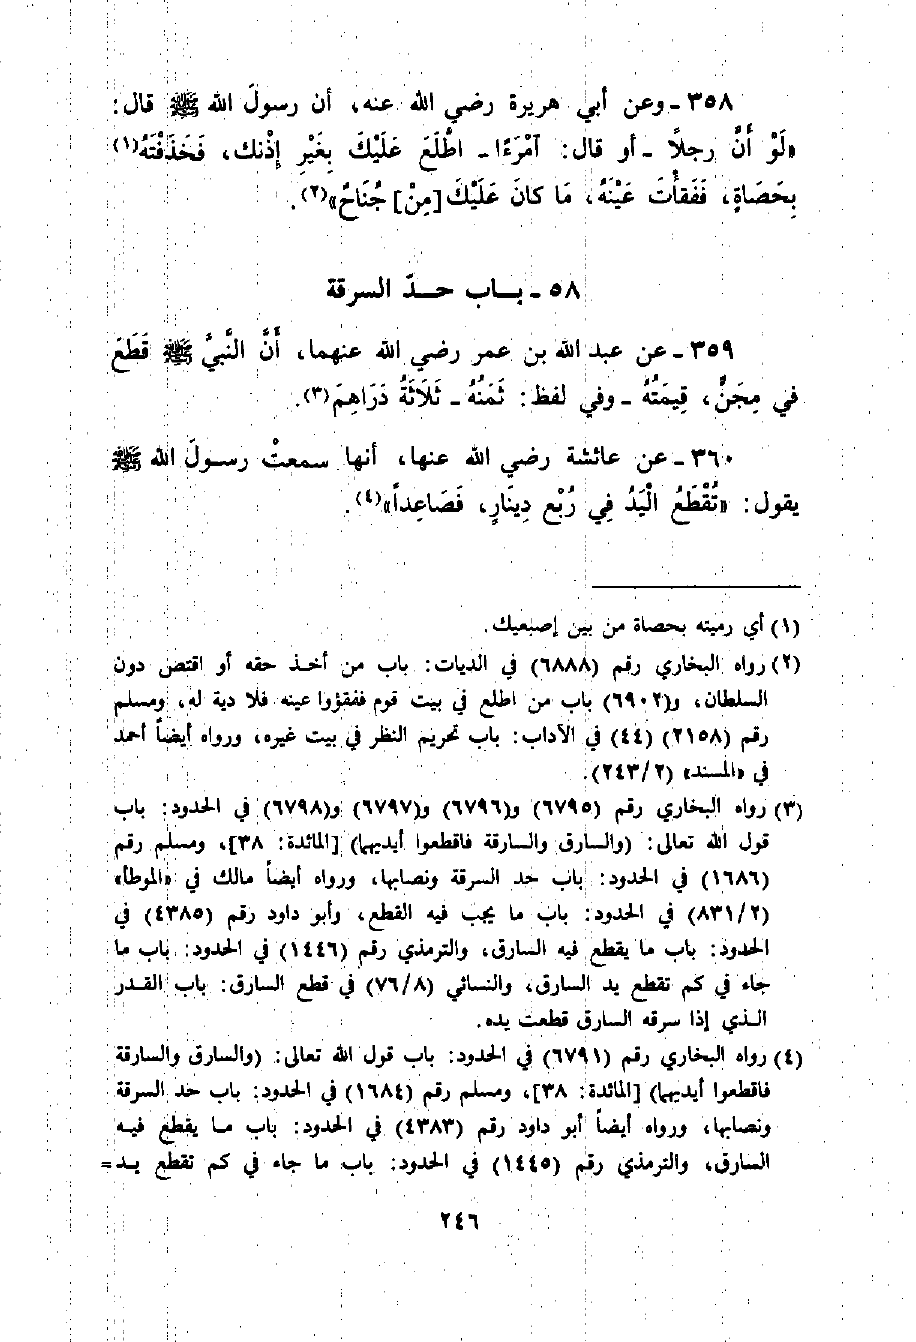 ٣٥٨ - وعن أبي هريرة رضي الله عنه، أن رسولَ الله ﷺ قال:
«لَوْ أَنَّ رجلاً - أو قال: آمْرَءًا - اطَّلَعَ عَلَيْكَ بِغَيْرِ إِذْنك، فَخَذَفْتَهُ(١)
بِحَصَاةٍ، فَفَقأْتَ عَيْنَهُ، مَا كانَ عَلَيْكَ [مِنْ] جُنَاحٌ»(٢).
٥٨ - بـاب حـدّ السرقة
٣٥٩ - عن عبد الله بن عمر رضي الله عنهما، أَنَّ النَّبيَّ ﷺ قَطَعَ
في مِجَنٍّ، قِيمَتُهُ - وفي لفظ: ثَمَنُهُ - ثَلَاثَةُ دَرَاهِمَ(٣).
٣٦٠ - عن عائشة رضي الله عنها، أنها سمعتْ رسولَ الله ﷺ
يقول: «تُقْطَعُ الْيَدُ فِي رُبْعِ دِينَارٍ، فَصَاعِداً»(٤).
(١) أي رميته بحصاة من بين إصبعيك.
(٢) رواه البخاري رقم (٦٨٨٨) في الديات: باب من أخذ حقه أو اقتص دون
السلطان، و(٦٩٠٢) باب من اطلع في بيت قوم ففقؤوا عينه فلا دية له، ومسلم
رقم (٢١٥٨) (٤٤) في الآداب: باب تحريم النظر في بيت غيره، ورواه أيضاً أحمد
في «المسند» (٢/٢٤٣).
(٣) رواه البخاري رقم (٦٧٩٥) و(٦٧٩٦) و(٦٧٩٧) و(٦٧٩٨) في الحدود: باب
قول الله تعالى: (والسارق والسارقة فاقطعوا أيديهما) [المائدة: ٣٨]، ومسلم رقم
(١٦٨٦) في الحدود: باب حد السرقة ونصابها، ورواه أيضاً مالك في «الموطأ»
(٢/٨٣١) في الحدود: باب ما يجب فيه القطع، وأبو داود رقم (٤٣٨٥) في
الحدود: باب ما يقطع فيه السارق، والترمذي رقم (١٤٤٦) في الحدود: باب ما
جاء في كم تقطع يد السارق، والنسائي (٨/٧٦) في قطع السارق: باب القدر
الذي إذا سرقه السارق قطعت يده.
(٤) رواه البخاري رقم (٦٧٩١) في الحدود: باب قول الله تعالى: (والسارق والسارقة
فاقطعوا أيديهما) [المائدة: ٣٨]، ومسلم رقم (١٦٨٤) في الحدود: باب حد السرقة
ونصابها، ورواه أيضاً أبو داود رقم (٤٣٨٣) في الحدود: باب ما يقطع فيه
السارق، والترمذي رقم (١٤٤٥) في الحدود: باب ما جاء في كم تقطع يد=
٢٤٦